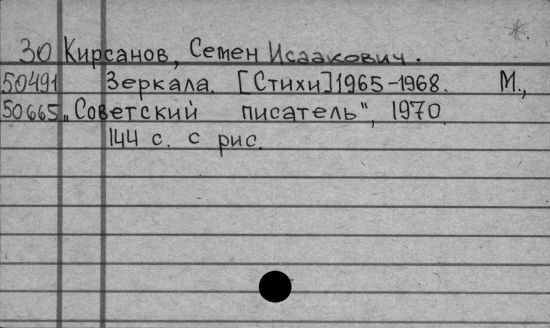 30 Кирсанов, Семен Исаакович.
50491 Зеркала. [Стихи] 1965-1968. М.,
50665 „Советский писатель", 1970.
144 с. с рис.